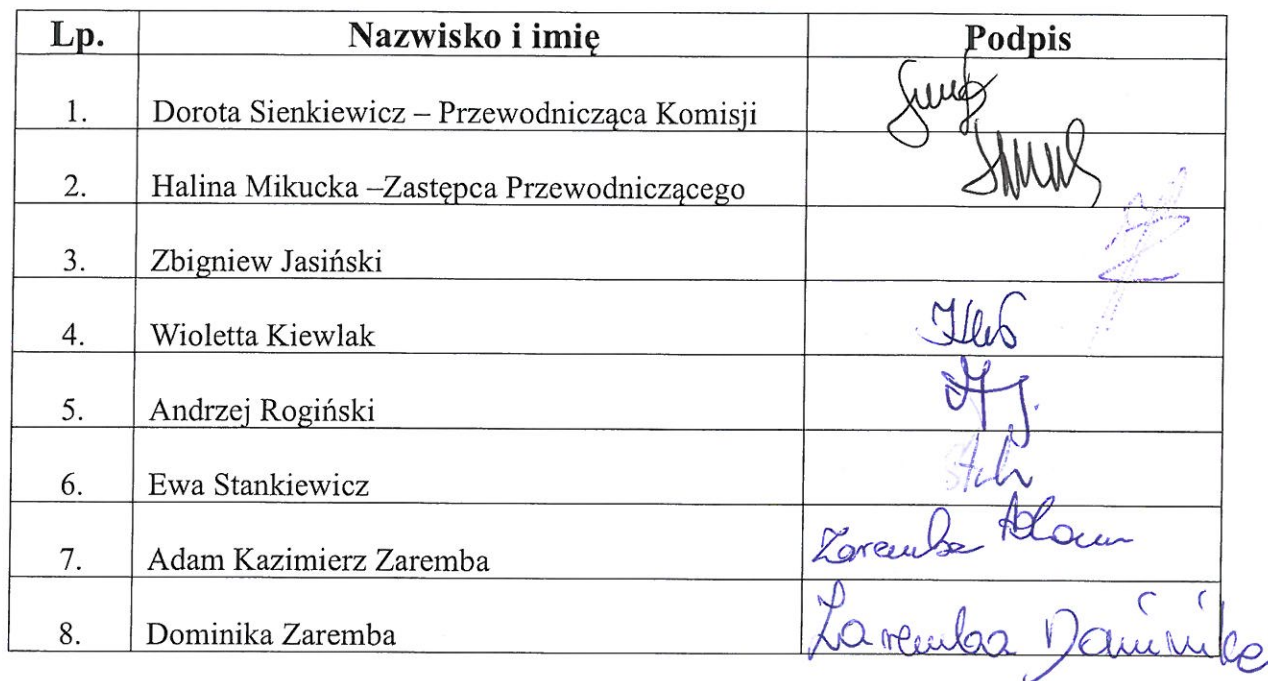 Lp. Nazwisko i imię Podpis
1. Dorota Sienkiewicz – Przewodnicząca Komisji
2. Halina Mikucka –Zastępca Przewodniczącego
3. Zbigniew Jasiński
4. Wioletta Kiewlak
5. Andrzej Rogiński
6. Ewa Stankiewicz
7. Adam Kazimierz Zaremba Zaremba Adam
8. Dominika Zaremba Zaremba Dominika